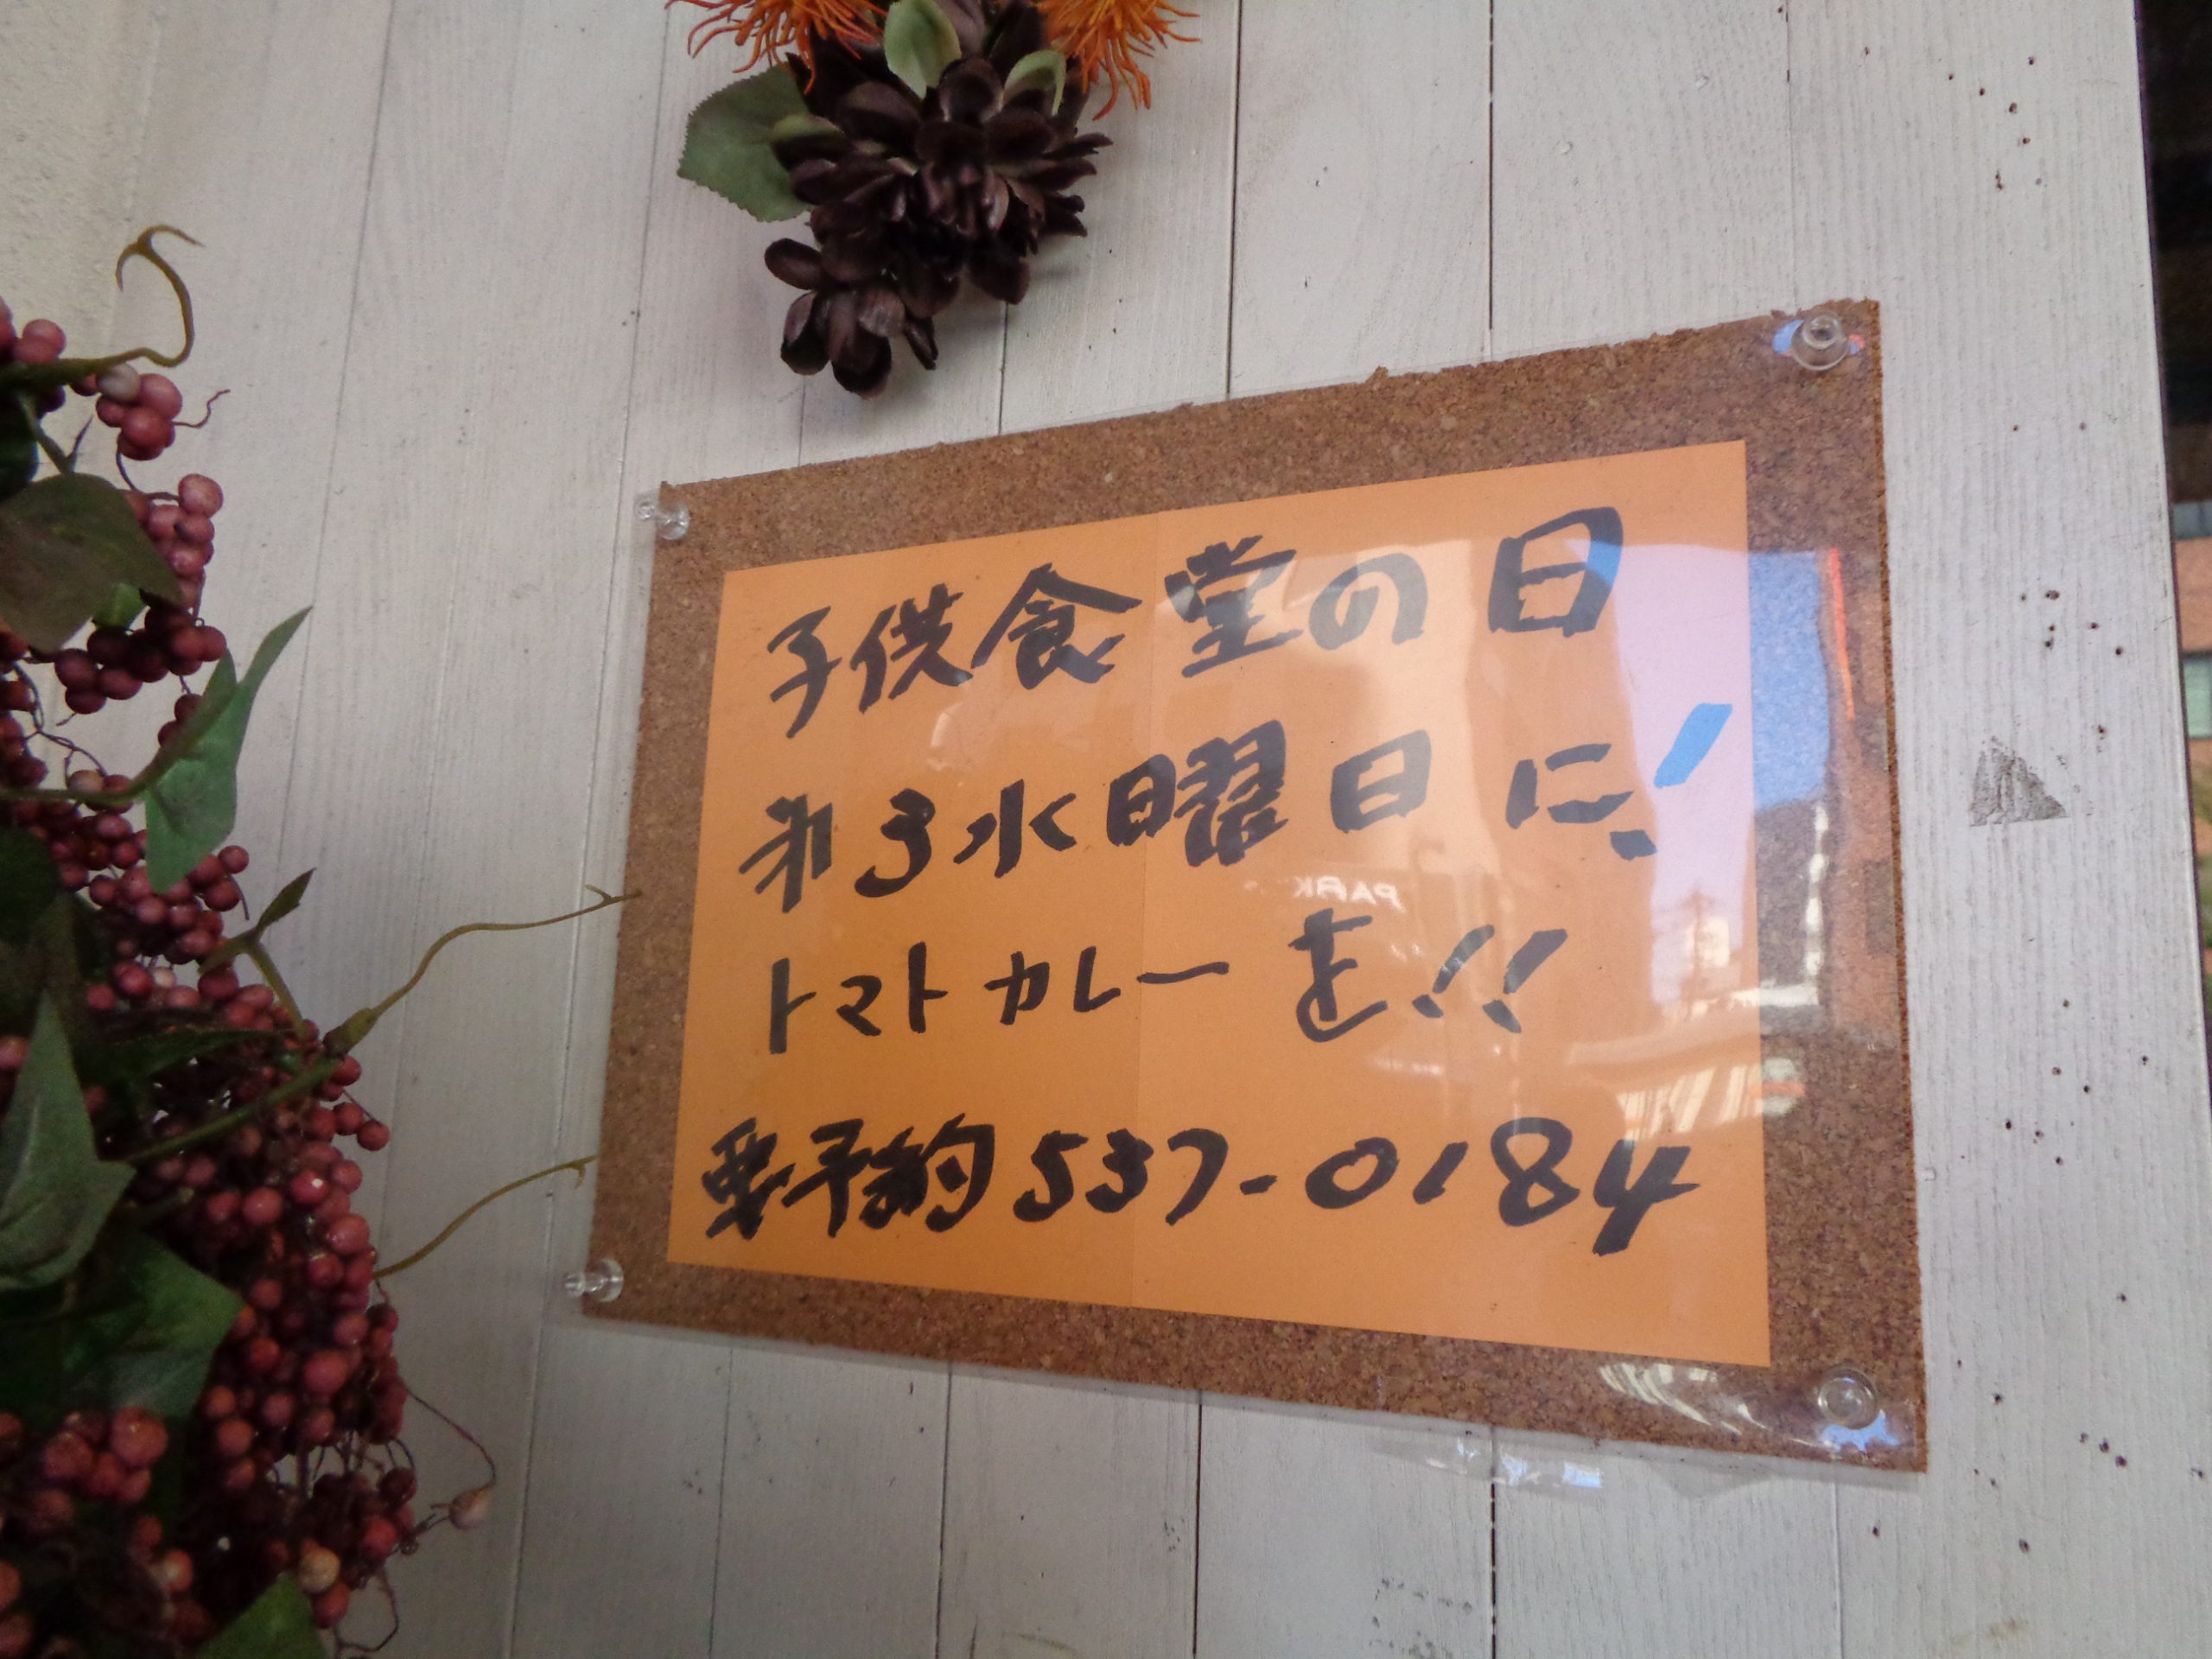 子供食堂の日
第3水曜日に!
トマトカレーを!!
要予約 537-0184
PARK